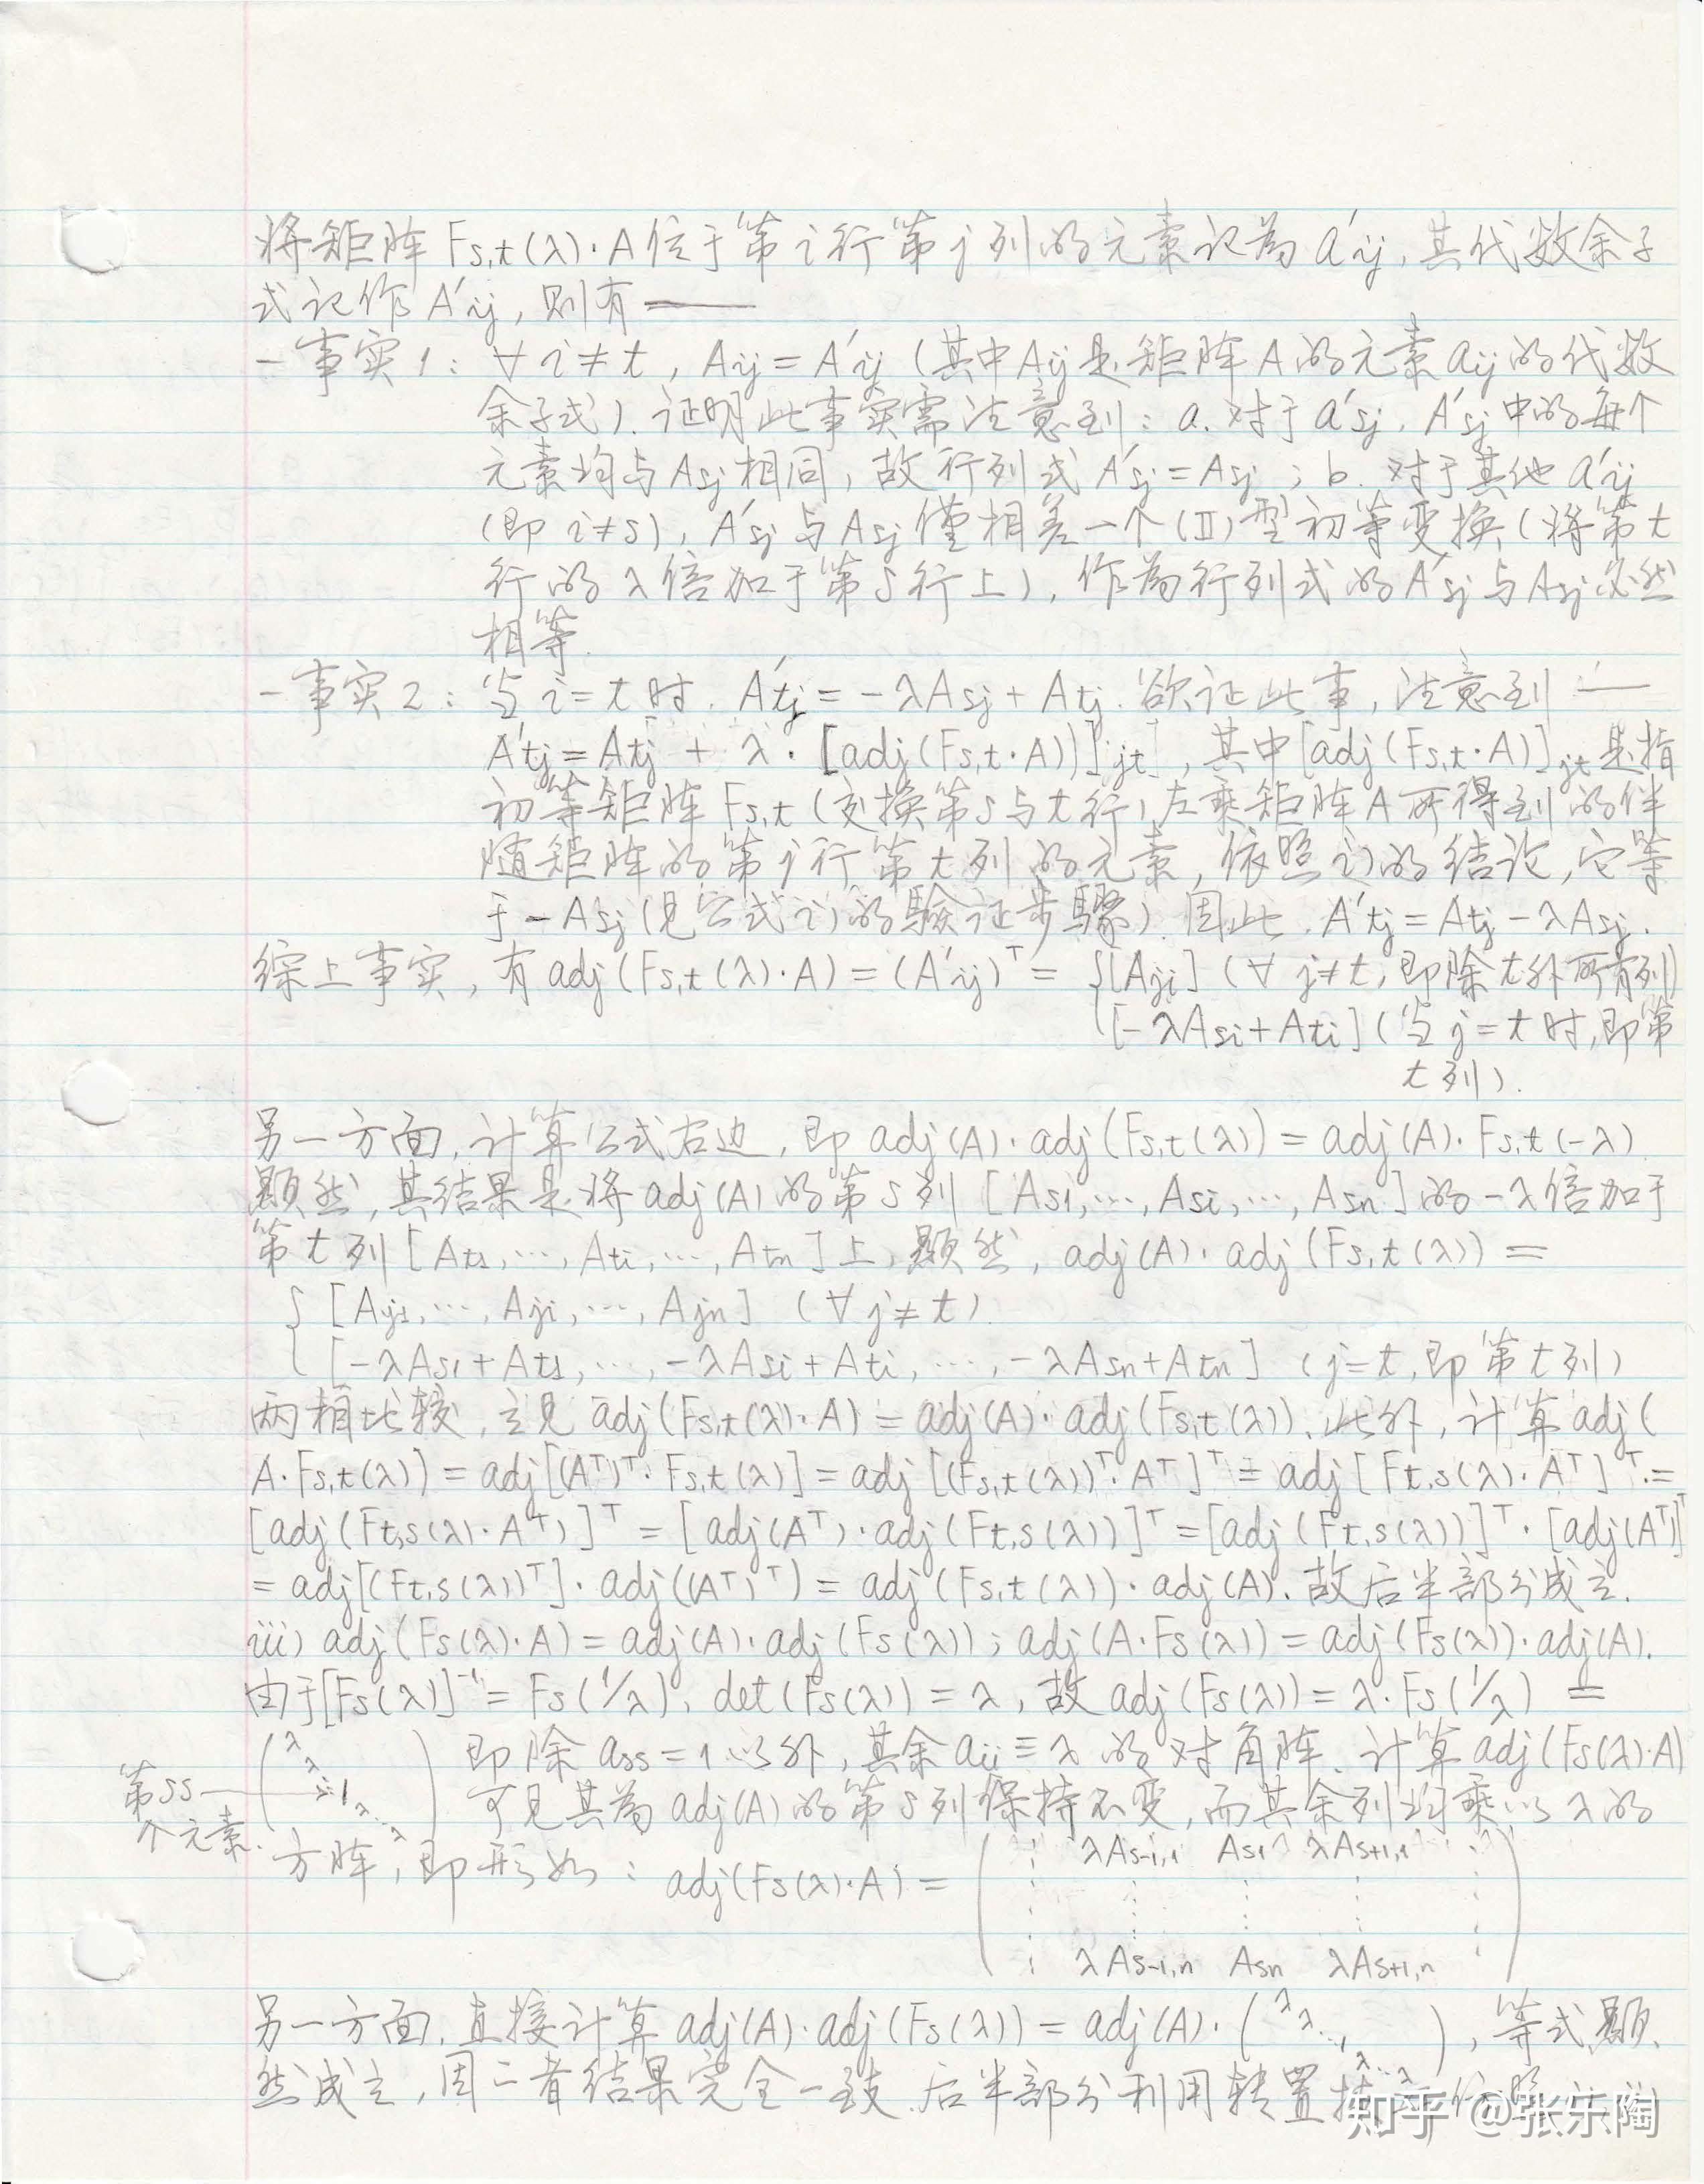 将矩阵 Fs,t(λ)·A 位于第 i 行第 j 列的元素记为 a'ij, 其代数余子
式记作 A'ij, 则有——
- 事实1: ∀ i≠t, Aij = A'ij (其中Aij是矩阵A的元素aij的代数
余子式). 证明此事实需注意到: a. 对于a'sj, A'sj中的每个
元素均与Asj相同, 故行列式 A'sj = Asj ; b. 对于其他 a'ij
(即 i≠s), A'sj 与 Asj 僅相差一个(II)型初等变换(将第t
行的λ倍加于第s行上), 作為行列式的A'sj与Asj必然
相等.
- 事实2: 当 i=t 时, A'tj = -λAsj + Atj. 欲证此事, 注意到——
A'tj = Atj + λ·[adj(Fs,t·A)]jt, 其中[adj(Fs,t·A)]jt是指
初等矩阵 Fs,t (交换第s与t行)左乘矩阵A所得到的伴
随矩阵的第j行第t列的元素, 依照i)的结论, 它等
于-Asj(见公式i)的驗证步驟). 因此, A'tj = Atj - λAsj.
综上事实, 有 adj(Fs,t(λ)·A) = (A'ij)ᵀ = { [Aji] (∀ j≠t, 即除t外所有列)
[-λAsi+Ati] (当 j=t 时, 即第
t列).
另一方面, 计算公式右边, 即 adj(A)·adj(Fs,t(λ)) = adj(A)·Fs,t(-λ)
顯然, 其结果是将 adj(A) 的第s列 [As1,…,Asi,…,Asn] 的-λ倍加于
第t列[At1,…,Ati,…,Atn]上, 顯然, adj(A)·adj(Fs,t(λ)) =
{ [Aj1,…,Aji,…,Ajn] (∀ j≠t)
[-λAs1+At1,…,-λAsi+Ati,…,-λAsn+Atn] (j=t, 即第t列)
两相比较, 立见 adj(Fs,t(λ)·A) = adj(A)·adj(Fs,t(λ)). 此外, 计算adj(
A·Fs,t(λ)) = adj[(Aᵀ)ᵀ·Fs,t(λ)] = adj[(Fs,t(λ))ᵀ·Aᵀ]ᵀ = adj[Ft,s(λ)·Aᵀ]ᵀ =
[adj(Ft,s(λ)·Aᵀ)]ᵀ = [adj(Aᵀ)·adj(Ft,s(λ))]ᵀ = [adj(Ft,s(λ))]ᵀ·[adj(Aᵀ)]ᵀ
= adj[(Ft,s(λ))ᵀ]·adj((Aᵀ)ᵀ) = adj(Fs,t(λ))·adj(A). 故后半部分成立.
iii) adj(Fs(λ)·A) = adj(A)·adj(Fs(λ)); adj(A·Fs(λ)) = adj(Fs(λ))·adj(A).
由于[Fs(λ)]⁻¹ = Fs(1/λ), det(Fs(λ)) = λ, 故 adj(Fs(λ)) = λ·Fs(1/λ) =
第ss个元素. ( λ λ ⋱ 1 λ ⋱ λ ) 即除 ass=1 以外, 其余 aii≡λ 的对角阵. 计算adj(Fs(λ)·A)
可见其為 adj(A) 的第s列保持不变, 而其余列均乘以λ的
方阵, 即形如: adj(Fs(λ)·A) = ( ⋮ λAs-1,1 As1 λAs+1,1 ⋮
⋮ ⋮ ⋮ ⋮ ⋮
⋮ λAs-1,n Asn λAs+1,n ⋮ )
另一方面, 直接计算 adj(A)·adj(Fs(λ)) = adj(A)·( λ λ ⋱ 1 λ ⋱ λ ), 等式顯
然成立, 因二者结果完全一致. 后半部分利用转置
知乎 @张乐陶